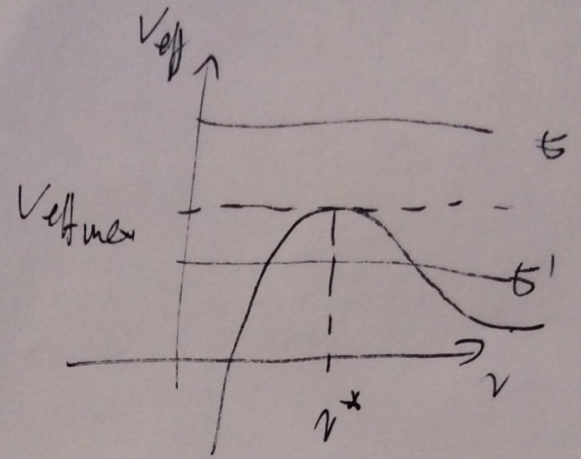 Veff
E
Veffmax
E'
r
r*